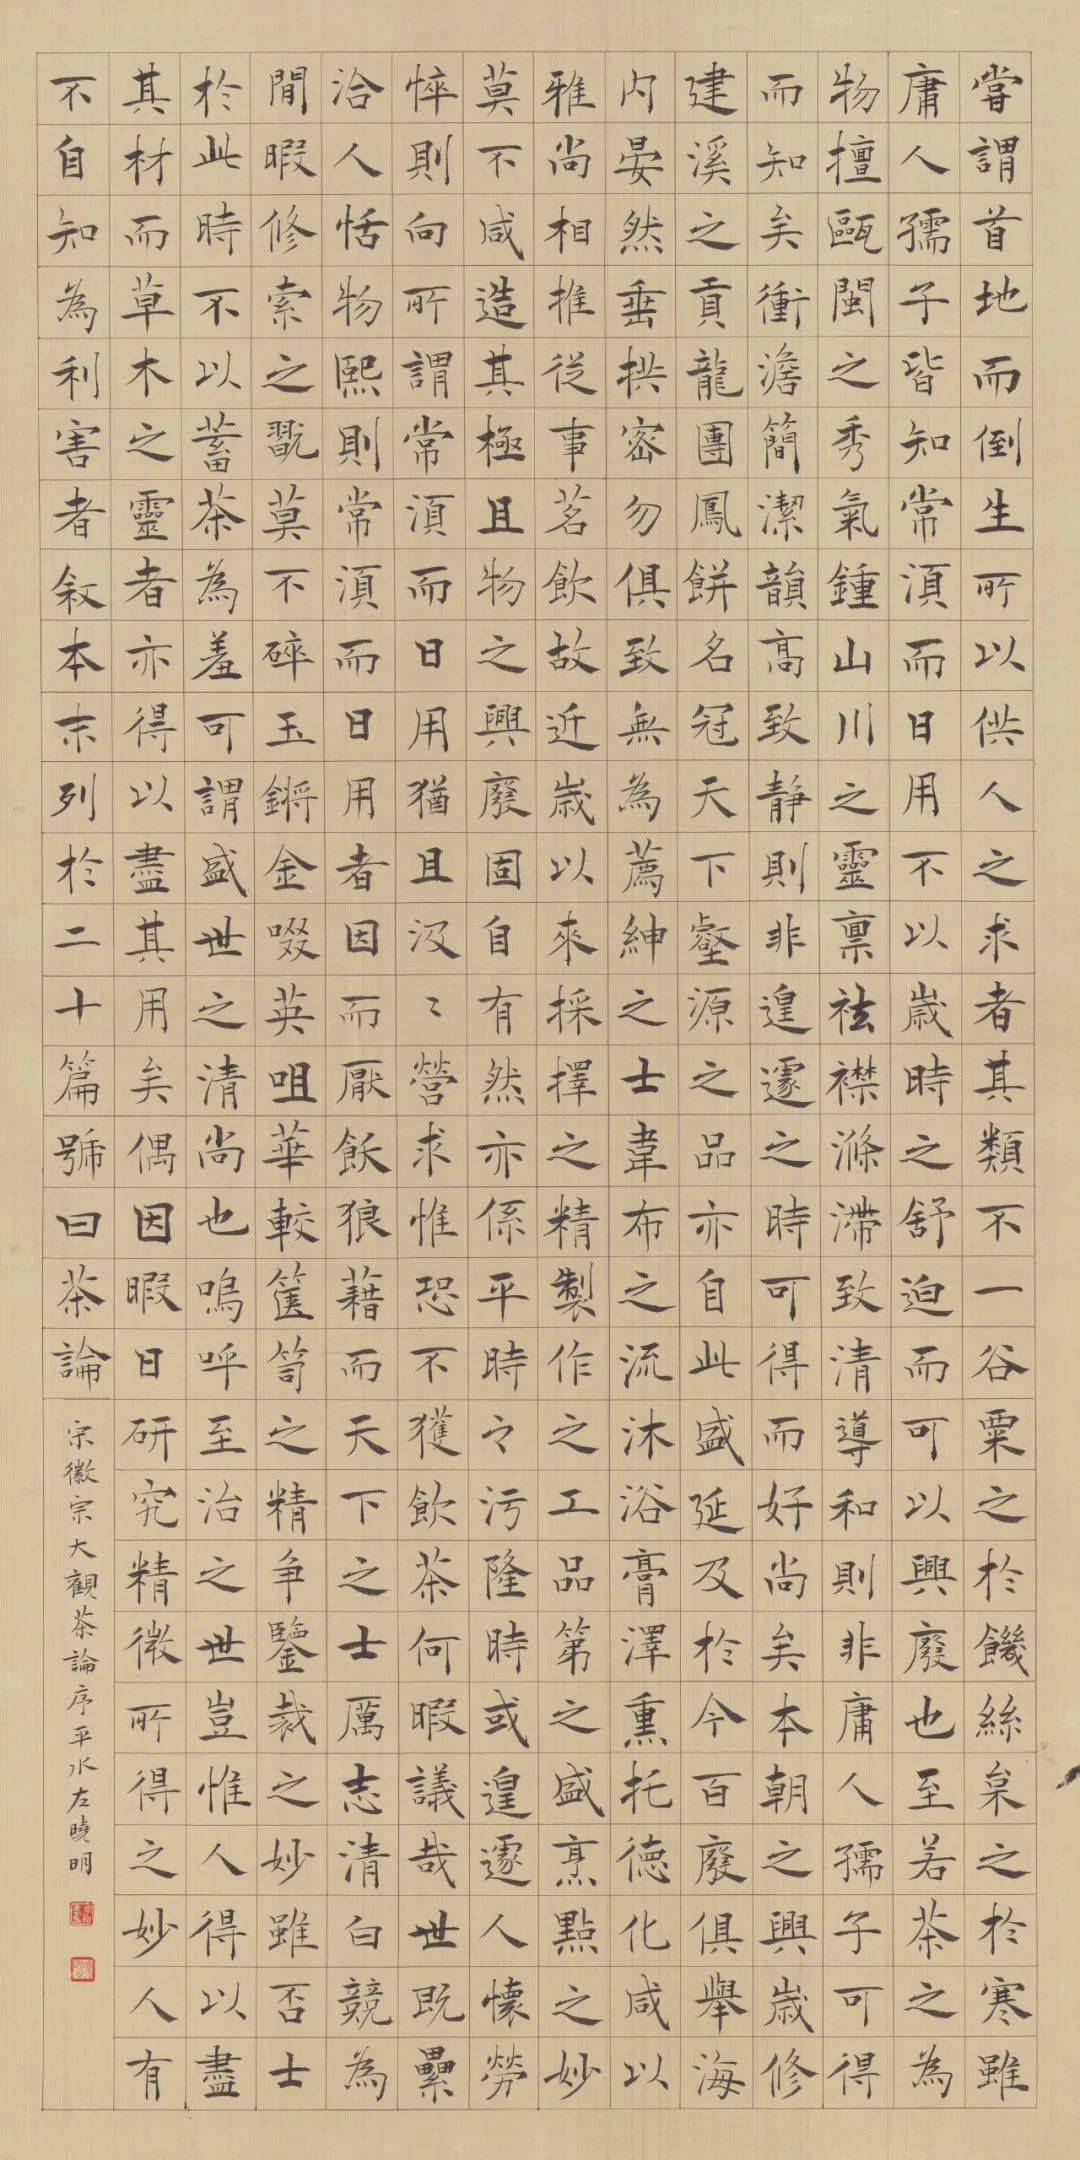 嘗謂首地而倒生所以供人之求者其類不一谷粟之於饑絲枲之於寒雖
庸人孺子皆知常湏而日用不以歲時之舒迫而可以興廢也至若茶之為
物擅甌閩之秀氣鍾山川之靈禀祛襟滌滯致清導和則非庸人孺子可得
而知矣衝澹簡潔韻高致靜則非遑遽之時可得而好尚矣本朝之興歲修
建溪之貢龍團鳳餅名冠天下壑源之品亦自此盛延及於今百廢俱舉海
内晏然垂拱密勿俱致無為薦紳之士韋布之流沐浴膏澤熏托德化咸以
雅尚相推從事茗飲故近歲以來採擇之精製作之工品第之盛烹點之妙
莫不咸造其極且物之興廢固自有然亦係平時之污隆時或遑遽人懷勞
悴則向所謂常湏而日用猶且汲〻營求惟恐不獲飲茶何暇議哉世既纍
洽人恬物熙則常湏而日用者因而厭飫狼藉而天下之士厲志清白競為
閒暇修索之翫莫不碎玉鏘金啜英咀華較篋笥之精争鑒裁之妙雖否士
於此時不以蓄茶為羞可謂盛世之清尚也嗚呼至治之世豈惟人得以盡
其材而草木之靈者亦得以盡其用矣偶因暇日研究精微所得之妙人有
不自知為利害者敘本末列於二十篇號曰茶論
宋徽宗大觀茶論序平水左曉明